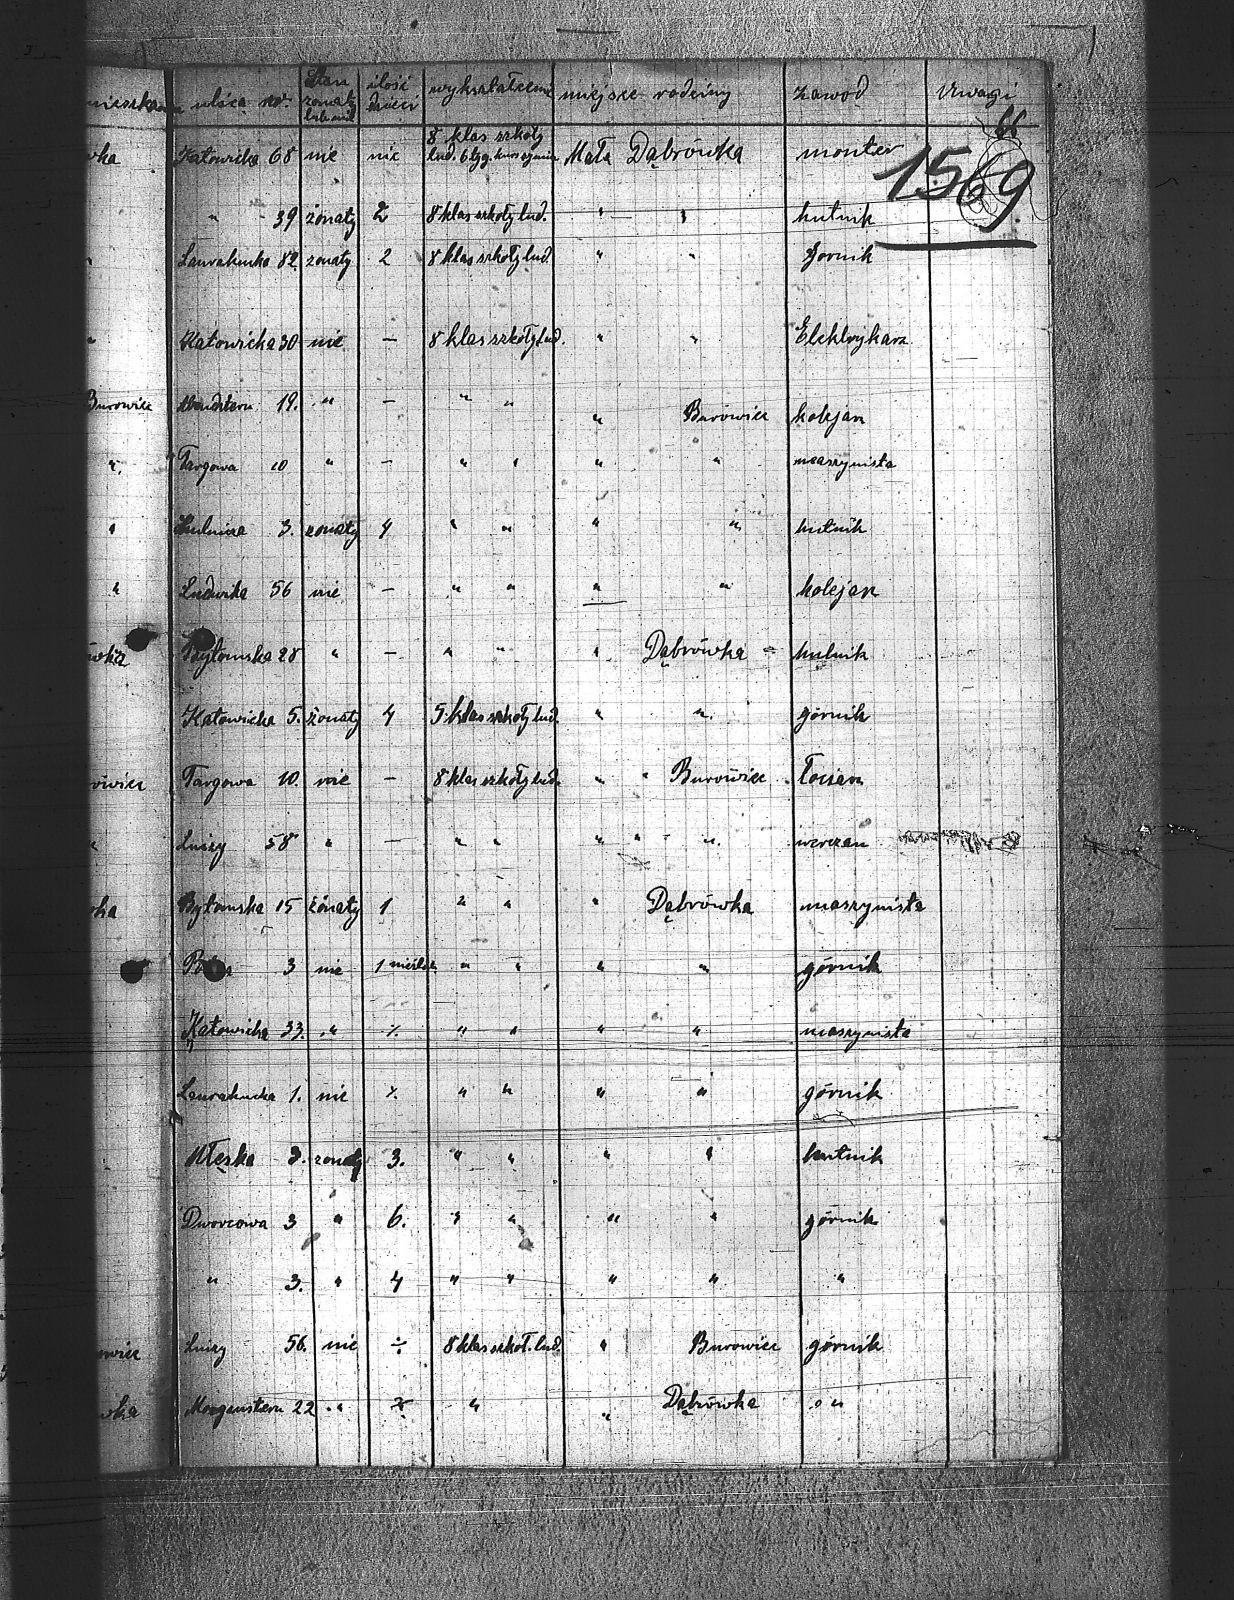 ulica nr. Stan żonaty lub nie ilość dzieci wykształcenie miejsce rodziny zawód Uwagi
66
1569
wka Katowicka 68 nie nie 8 klas szkoły lud. 6 tyg. kurs Mała Dąbrówka monter
" 39 żonaty 2 8 klas szkoły lud. " " hutnik
" Laurahucka 82. żonaty 2 8 klas szkoły lud. " " górnik
" Katowicka 30 nie — 8 klas szkoły lud. " " Elektrykarz
Burowiec 19. " — " " " Burowiec kolejarz
" Targowa 10 " — " " " " maszynista
" 3. żonaty 4 " " " " hutnik
" Ludwika 56 nie — " " " " kolejarz
ówka Bytomska 28 " — " " " Dąbrówka hutnik
Katowicka 5. żonaty 4 5 klas szkoły lud. " " górnik
owiec Targowa 10. nie — 8 klas szkoły lud. " " Burowiec
" Luizy 58 " — " " " " "
wka Bytomska 15 żonaty 1 " " " Dąbrówka maszynista
3 nie 1 " " " " górnik
Katowicka 33. " ⁒ " " " " maszynista
Laurahucka 1. nie ⁒ " " " " górnik
3. żonaty 3. " " " " hutnik
Dworcowa 3 " 6. " " " " górnik
" 3. " 4 " " " " "
owiec Luizy 56. nie ÷ 8 klas szkoł. lud. " Burowiec górnik
wka Morgenstern 22 " ⁒ " " Dąbrówka "